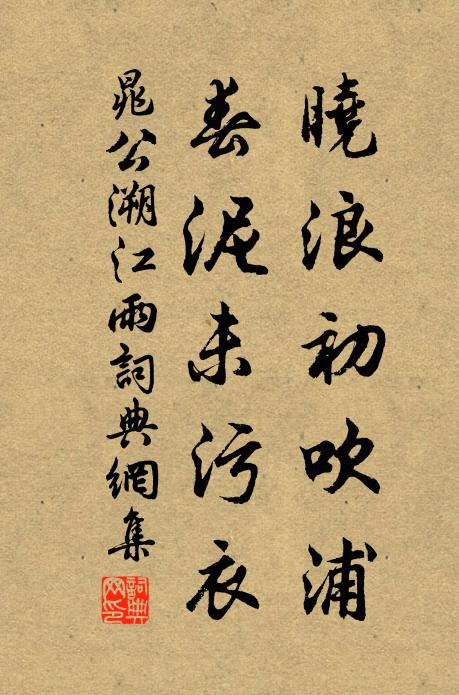 曉浪初吹浦
春泥未污衣
晁公溯江雨詞典網集
詞典網印